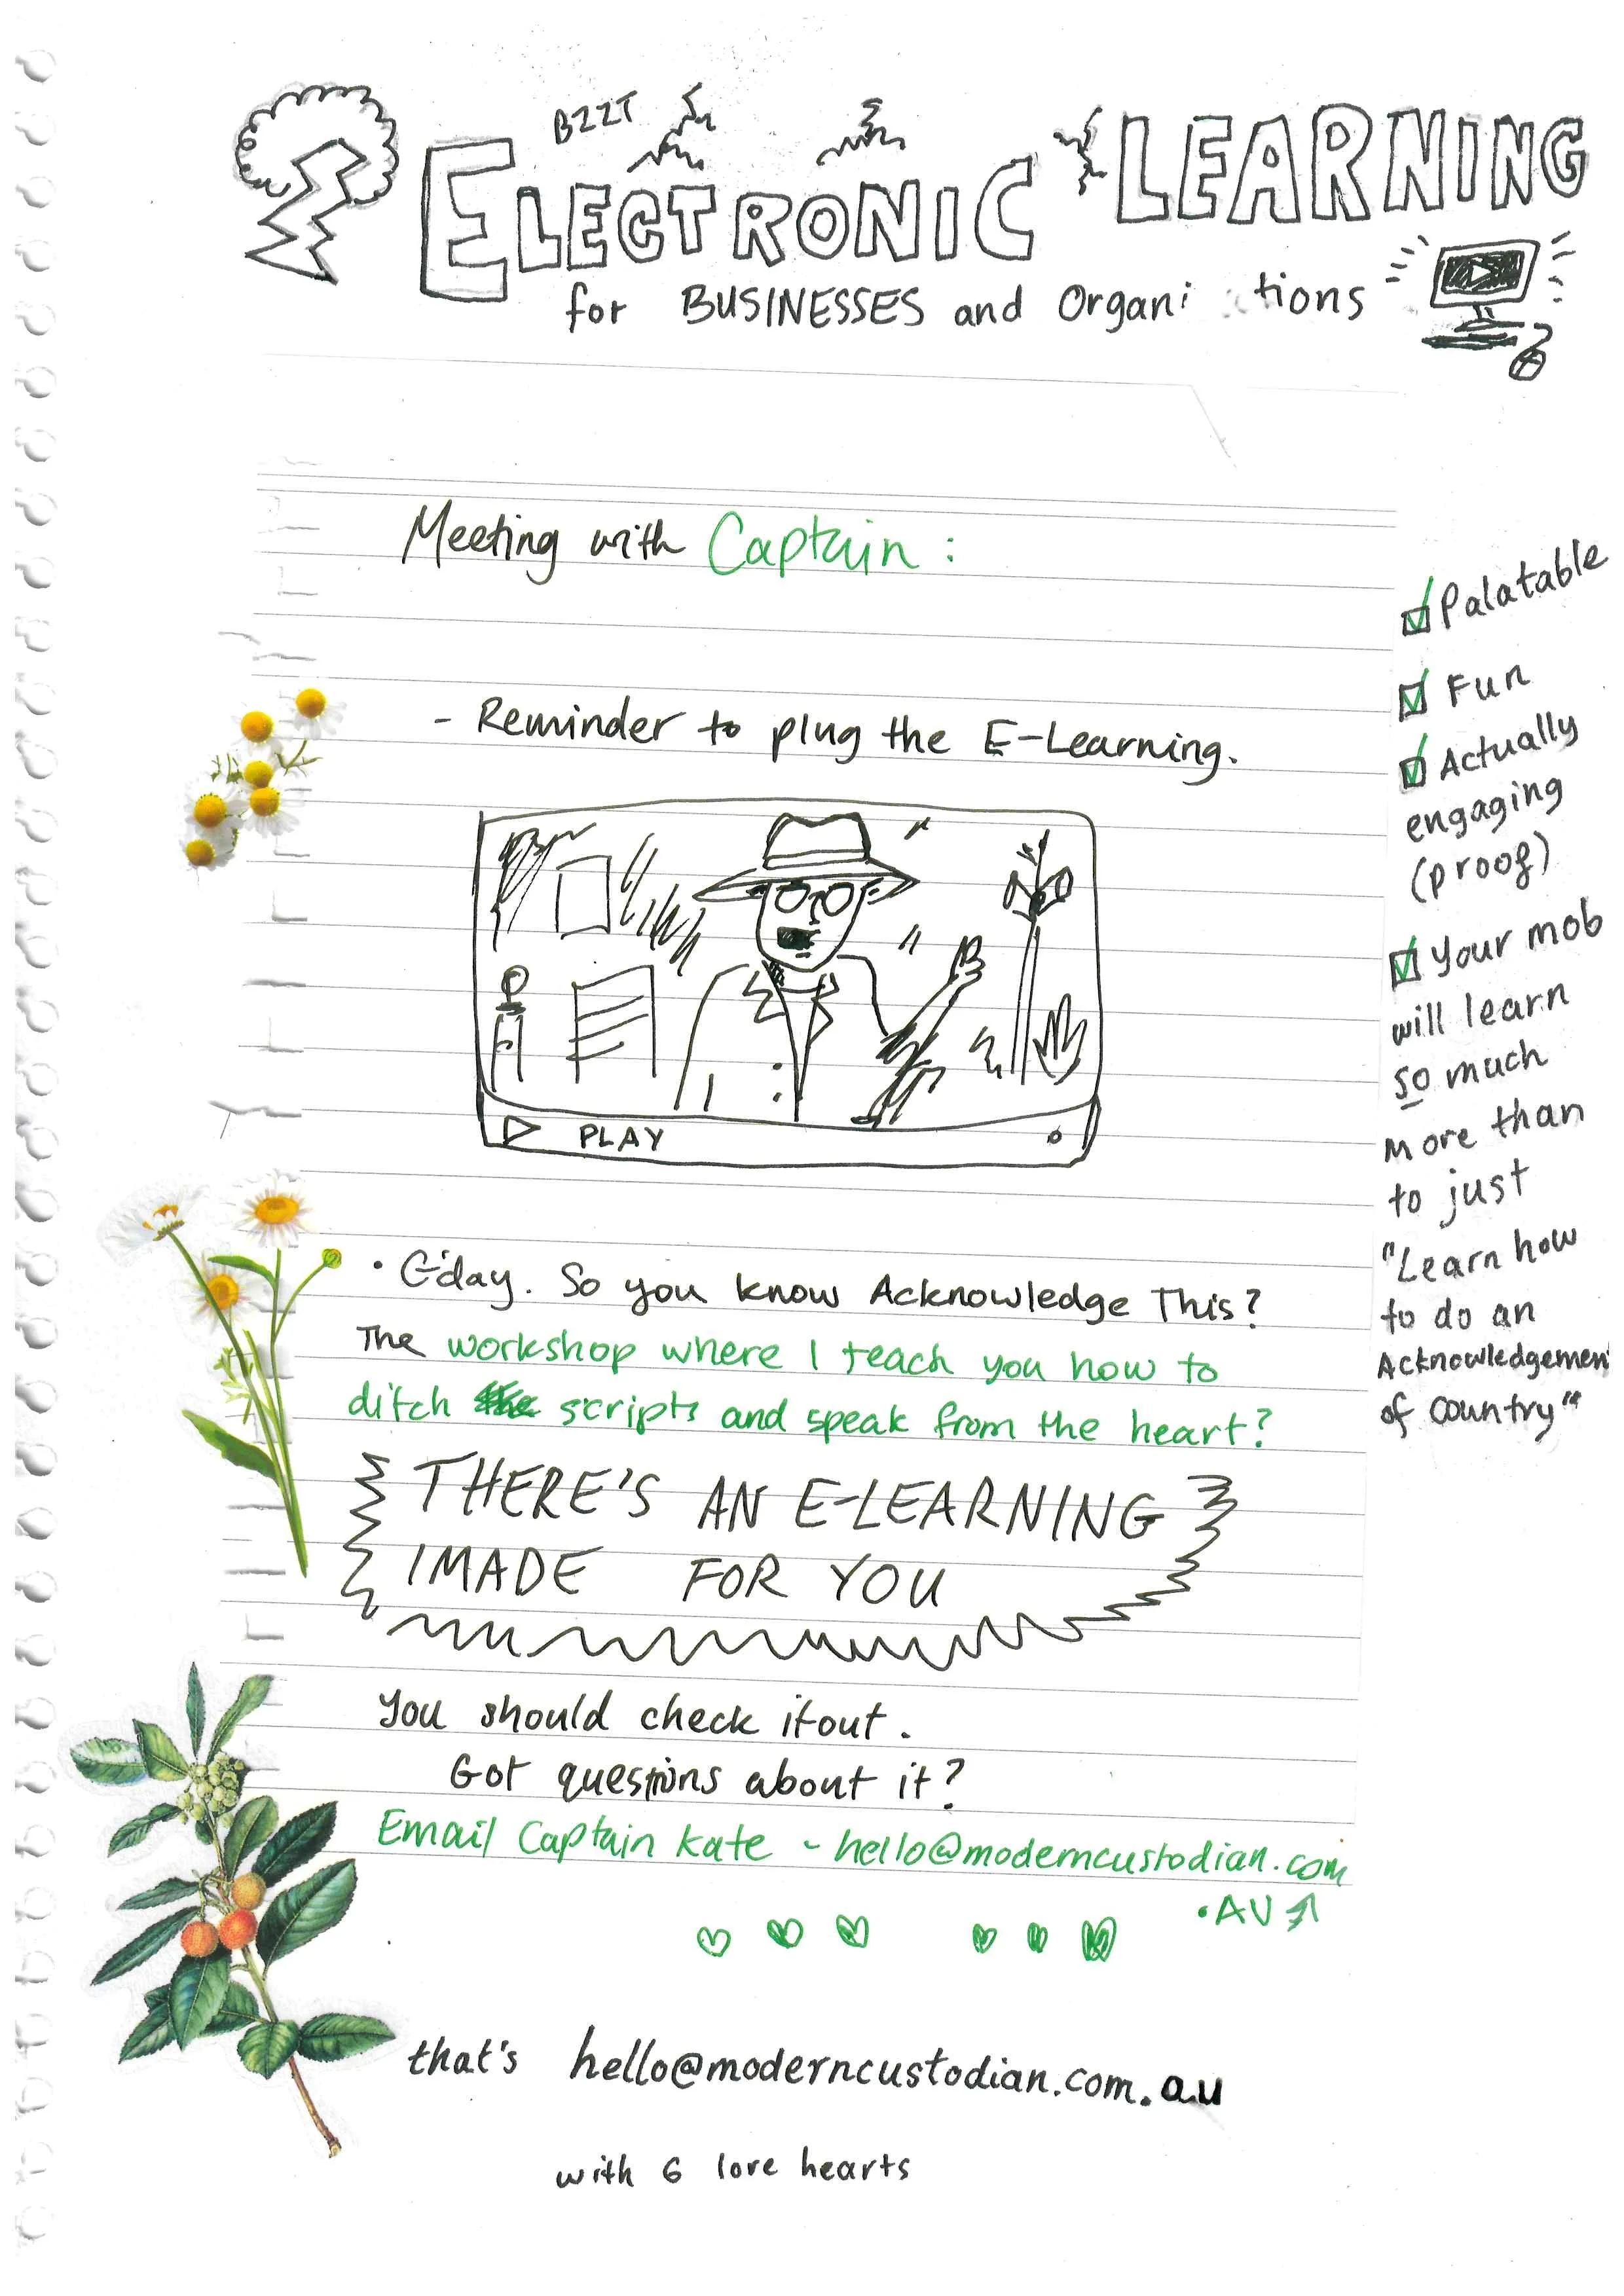 BZZT
ELECTRONIC LEARNING
for BUSINESSES and Organi tions
Meeting with Captain :
- Reminder to plug the E-Learning.
PLAY
• G'day. So you know Acknowledge This?
The workshop where I teach you how to
ditch the scripts and speak from the heart?
THERE'S AN E-LEARNING
I MADE FOR YOU
You should check it out.
Got questions about it?
Email Captain Kate - hello@moderncustodian.com
.AU
that's hello@moderncustodian.com.au
with 6 love hearts
Palatable
Fun
Actually
engaging
(proof)
Your mob
will learn
so much
more than
to just
"Learn how
to do an
Acknowledgemen
of Country"